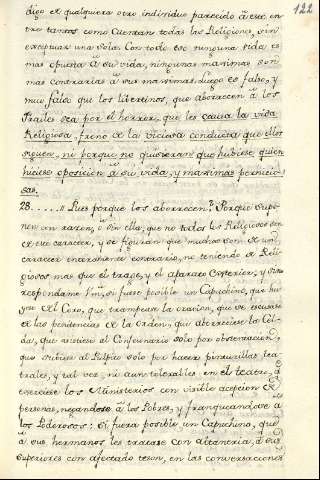 122
digo el qualquiera otro individuo parecido à ese, en
tre tantos como cuentan todas las Religiones, sin
exceptuar una sola. Con todo eso ninguna vida es
mas opuesta à su vida, ningunas maximas son
mas contrarias à sus maximas. Luego es falso, y
muy falso que los libertinos, que aborrecen à los
Frailes sea por el horror, que les causa la vida
Religiosa, freno de la viciosa conducta que ellos
siguen, ni porque no quisieran que hubiese quien
hiciese oposicion à su vida, y maximas pernicio-
sas.
28..... Pues porque los aborrecen? Porque supo-
nen con razon, ò sin ella, que no todos los Religiosos son
de ese caracter, y se figuran que muchos son de un
caracter enteramente contrario, no teniendo de Reli-
giosos mas que el trage, y el aparato exterior, y sino
respondame Vm. si fuese posible un Capuchino, que hu-
yese el Coro, que trampease la oracion, que se escusase
de las penitencias de la Orden, que aborreciese la Cel-
da, que asistiese al Confesionario solo por obstentacion,
que subiese al Pulpito solo por hacer pinturillas tea-
trales, y tal vez, ni aun tolerables en el teatro, q.
exerciese los Ministerios con visible acepcion de
personas, negandose à los Pobres, y franqueandose à
los Poderosos: si fuera posible un Capuchino, que
à sus hermanos les tratase con altaneria, à sus
Superiores con afectado teson, en las conversaciones